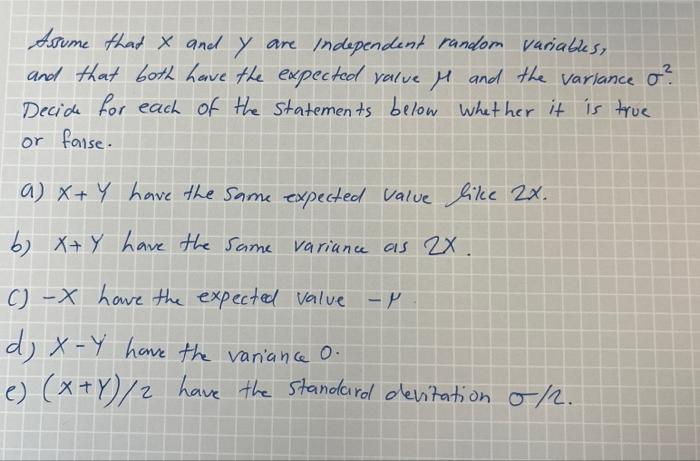 Assume that X and Y are independent random variables,
and that both have the expected value μ and the variance σ².
Decide for each of the statements below whether it is true
or false.
a) X+Y have the same expected value like 2X.
b) X+Y have the same variance as 2X.
c) -X have the expected value -μ
d) X-Y have the variance 0.
e) (X+Y)/2 have the standard devitation σ/2.